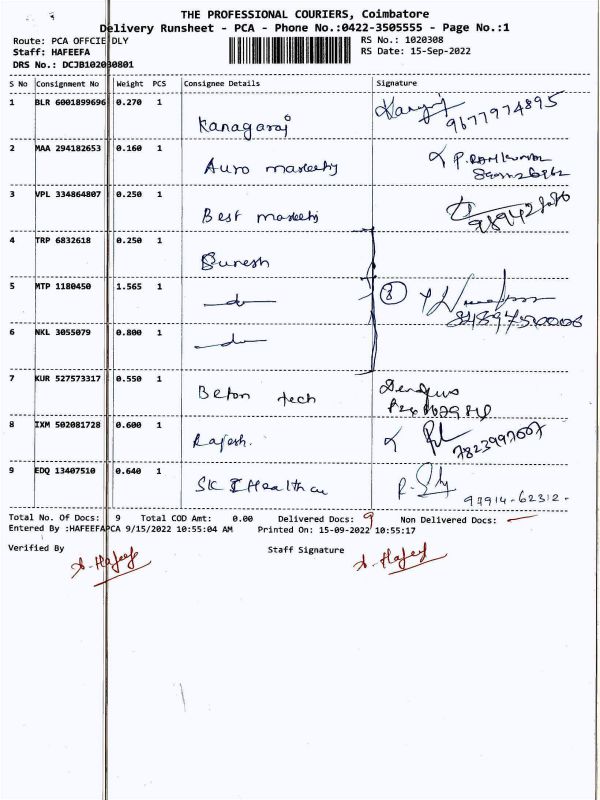 THE PROFESSIONAL COURIERS, Coimbatore
Delivery Runsheet - PCA - Phone No.:0422-3505555 - Page No.:1
Route: PCA OFFCIE DLY RS No.: 1020308
Staff: HAFEEFA RS Date: 15-Sep-2022
DRS No.: DCJB102030801
S No Consignment No Weight PCS Consignee Details Signature
1 BLR 6001899696 0.270 1 Kanagaraj 9677974895
2 MAA 294182653 0.160 1 Auro P.
3 VPL 334864807 0.250 1 Best
4 TRP 6832618 0.250 1 Suresh
5 MTP 1180450 1.565 1 do 8
6 NKL 3055079 0.800 1 do
7 KUR 527573317 0.550 1 Beton tech
8 IXM 502081728 0.600 1 Rajesh. 7823997607
9 EDQ 13407510 0.640 1 97914-62312-
Total No. Of Docs: 9 Total COD Amt: 0.00 Delivered Docs: 9 Non Delivered Docs: —
Entered By :HAFEEFAPCA 9/15/2022 10:55:04 AM Printed On: 15-09-2022 10:55:17
Verified By Staff Signature
A. Hafeef A. Hafeef